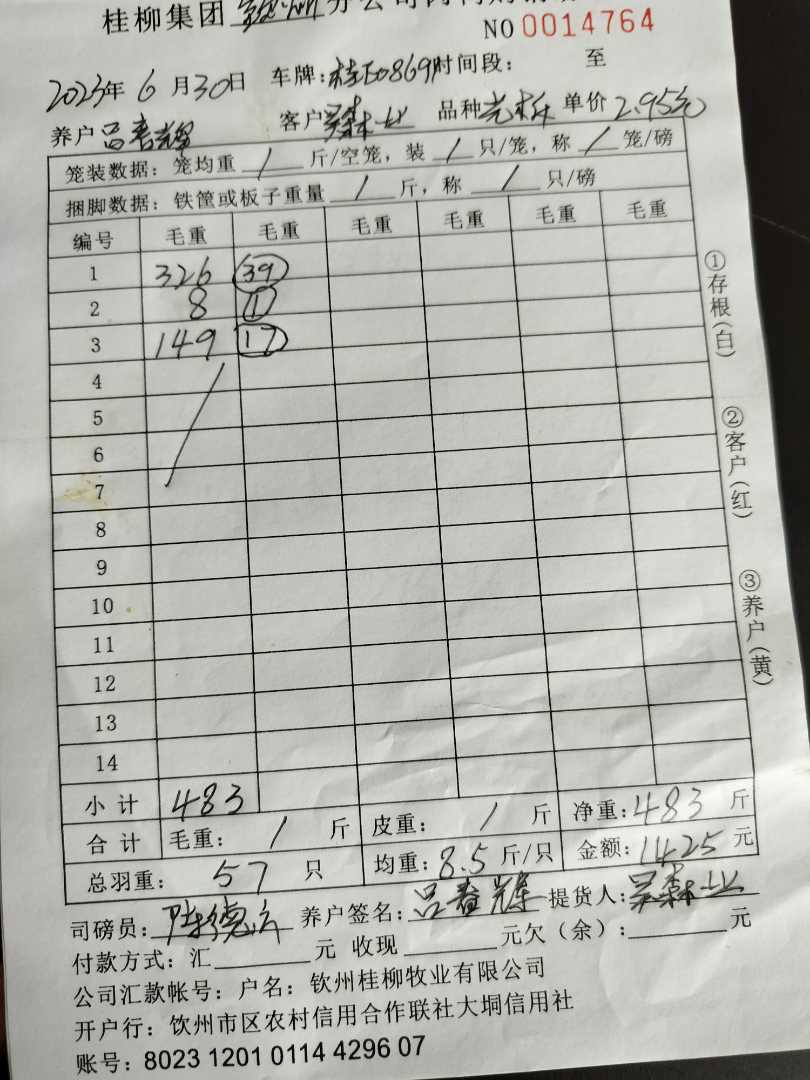 桂柳集团 钦州 分公司
NO 0014764
2023年 6 月30日 车牌:桂E0869时间段: 至
养户吕春辉 客户吴森业 品种 单价2.95元
笼装数据: 笼均重 / 斤/空笼, 装 / 只/笼, 称 / 笼/磅
捆脚数据: 铁筐或板子重量 / 斤, 称 / 只/磅
编号 毛重 毛重 毛重 毛重 毛重 毛重
1 326 39
2 8 1
3 149 17
4
5
6
7
8
9
10
11
12
13
14
小计 483
合计 毛重: / 斤 皮重: / 斤 净重:483 斤
总羽重: 57 只 均重:8.5斤/只 金额:1425 元
司磅员: 陈德 养户签名:吕春辉 提货人:吴森业
付款方式: 汇 元 收现 元欠(余): 元
公司汇款帐号: 户名: 钦州桂柳牧业有限公司
开户行: 钦州市区农村信用合作联社大垌信用社
账号: 8023 1201 0114 4296 07
①存根(白)
②客户(红)
③养户(黄)